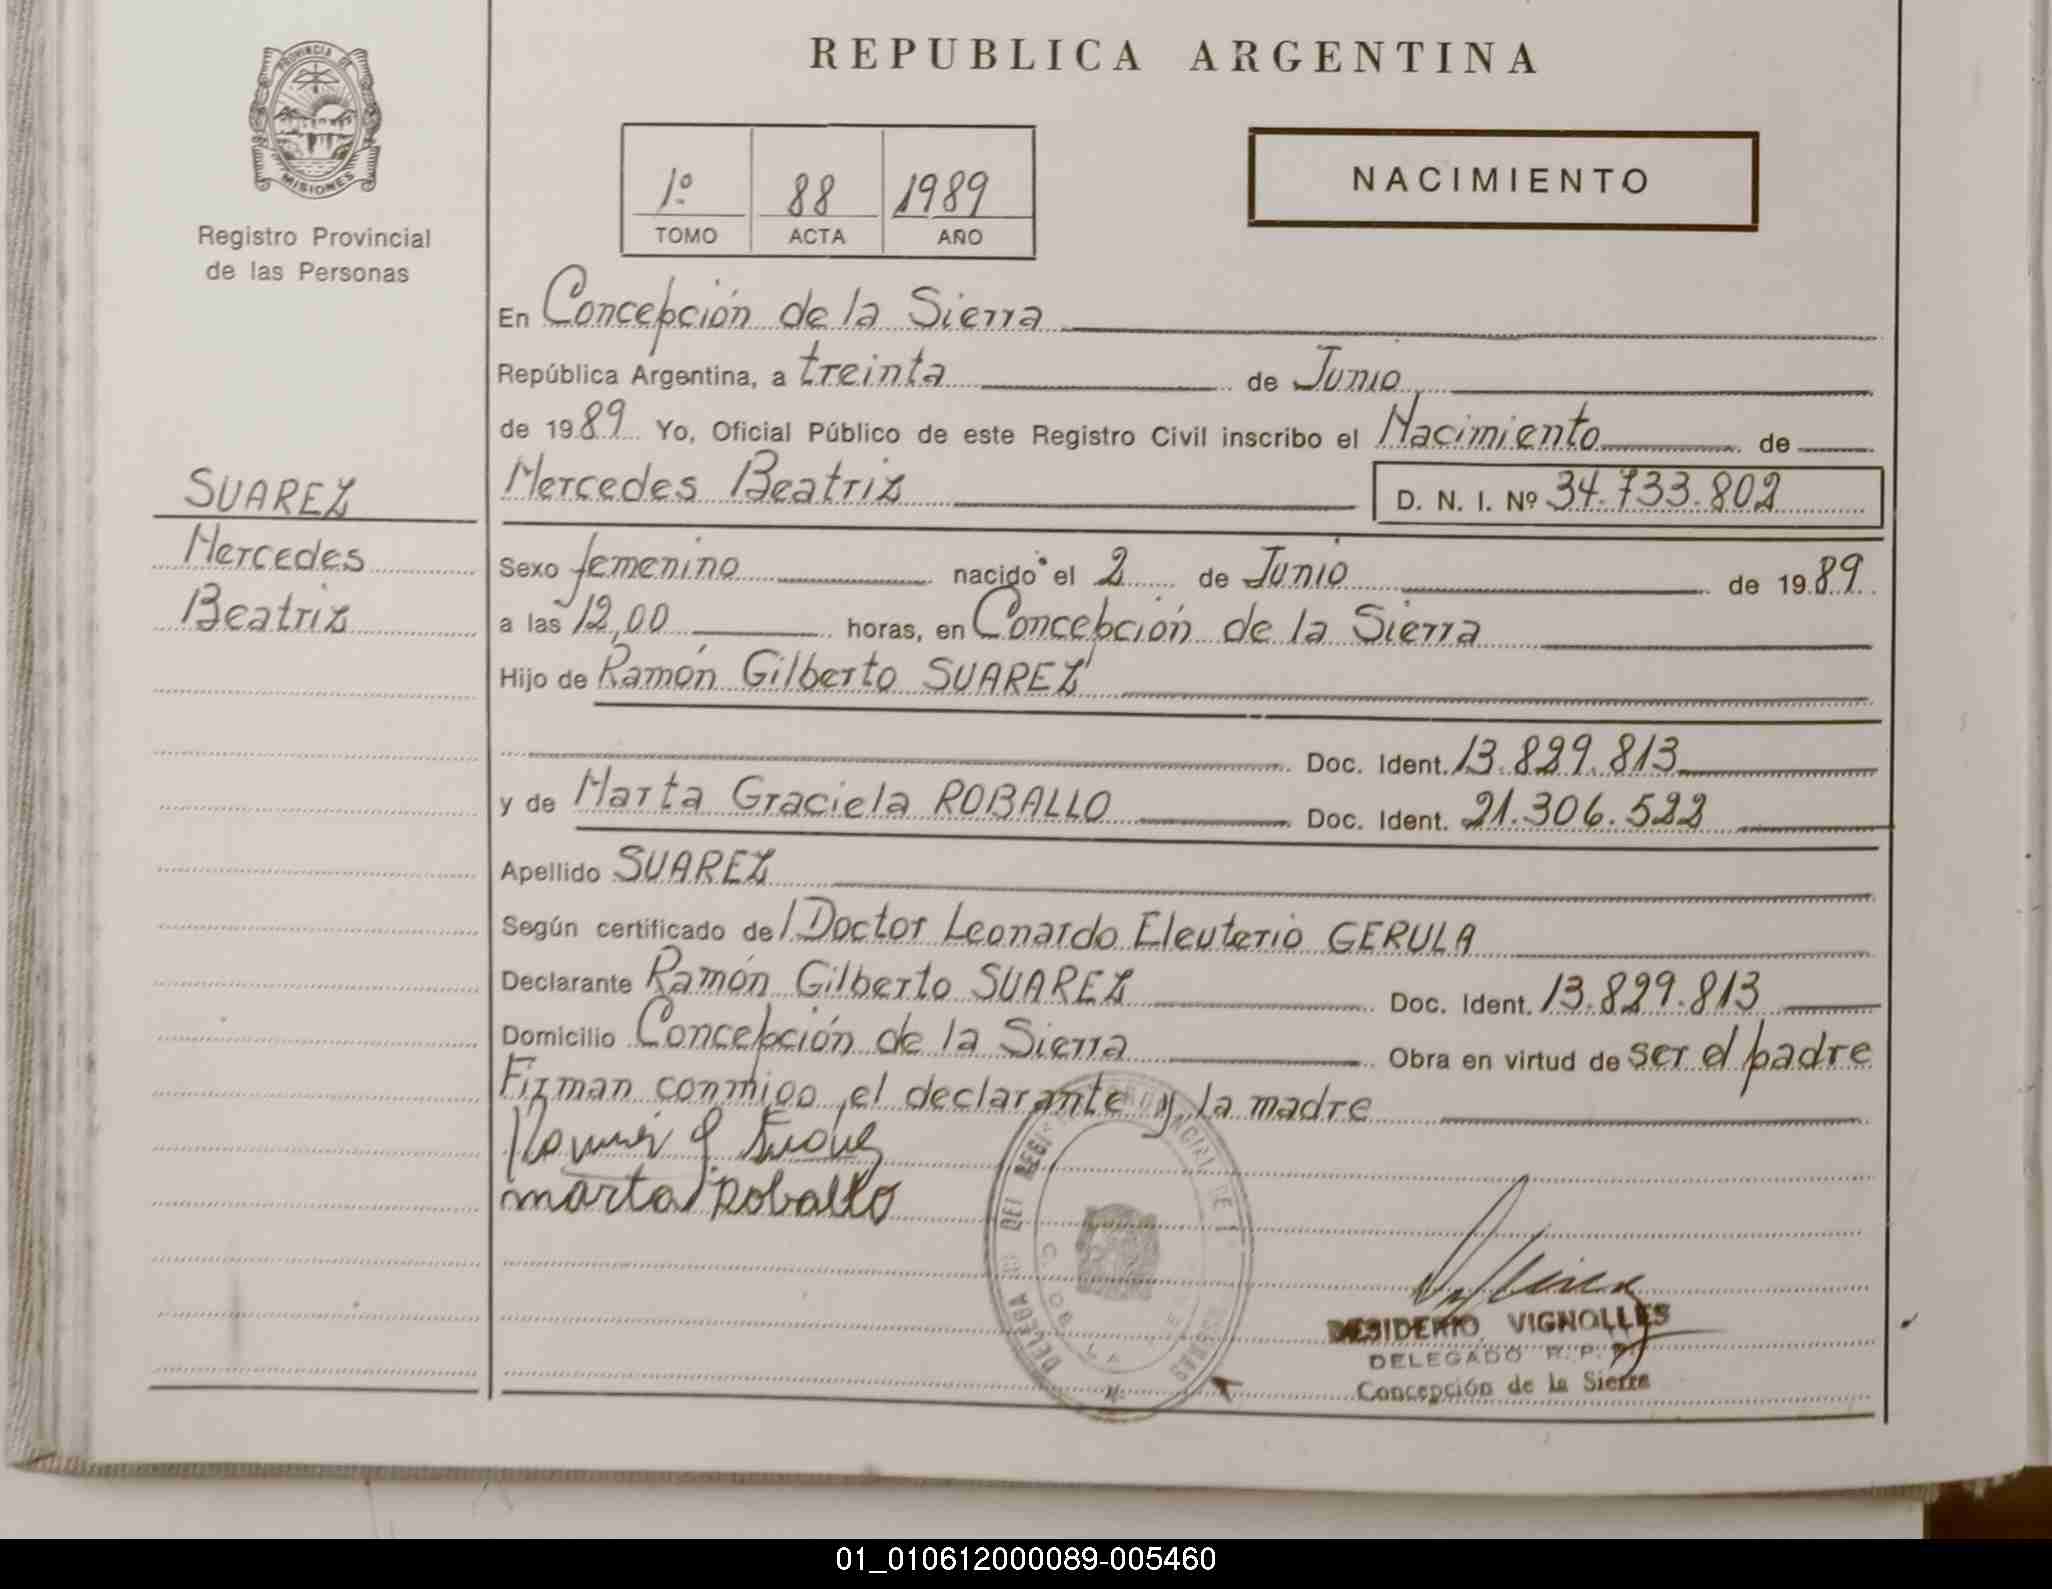 REPUBLICA ARGENTINA
PROVINCIA DE
MISIONES
Registro Provincial
de las Personas
1º 88 1989
TOMO ACTA AÑO
NACIMIENTO
En Concepción de la Sierra
República Argentina, a treinta de Junio
de 1989 Yo, Oficial Público de este Registro Civil inscribo el Nacimiento de
Mercedes Beatriz D. N. I. Nº 34.733.802
SUAREZ
Mercedes
Beatriz
Sexo femenino nacido el 2 de Junio de 1989
a las 12,00 horas, en Concepción de la Sierra
Hijo de Ramón Gilberto SUAREZ
Doc. Ident. 13.829.813
y de Marta Graciela ROBALLO Doc. Ident. 21.306.522
Apellido SUAREZ
Según certificado del Doctor Leonardo Eleuterio GERULA
Declarante Ramón Gilberto SUAREZ Doc. Ident. 13.829.813
Domicilio Concepción de la Sierra Obra en virtud de ser el padre
Firman conmigo el declarante y la madre
Ramón G. Suarez
marta Roballo
DESIDERIO VIGNOLLES
DELEGADO R. P. P.
Concepción de la Sierra
01_010612000089-005460